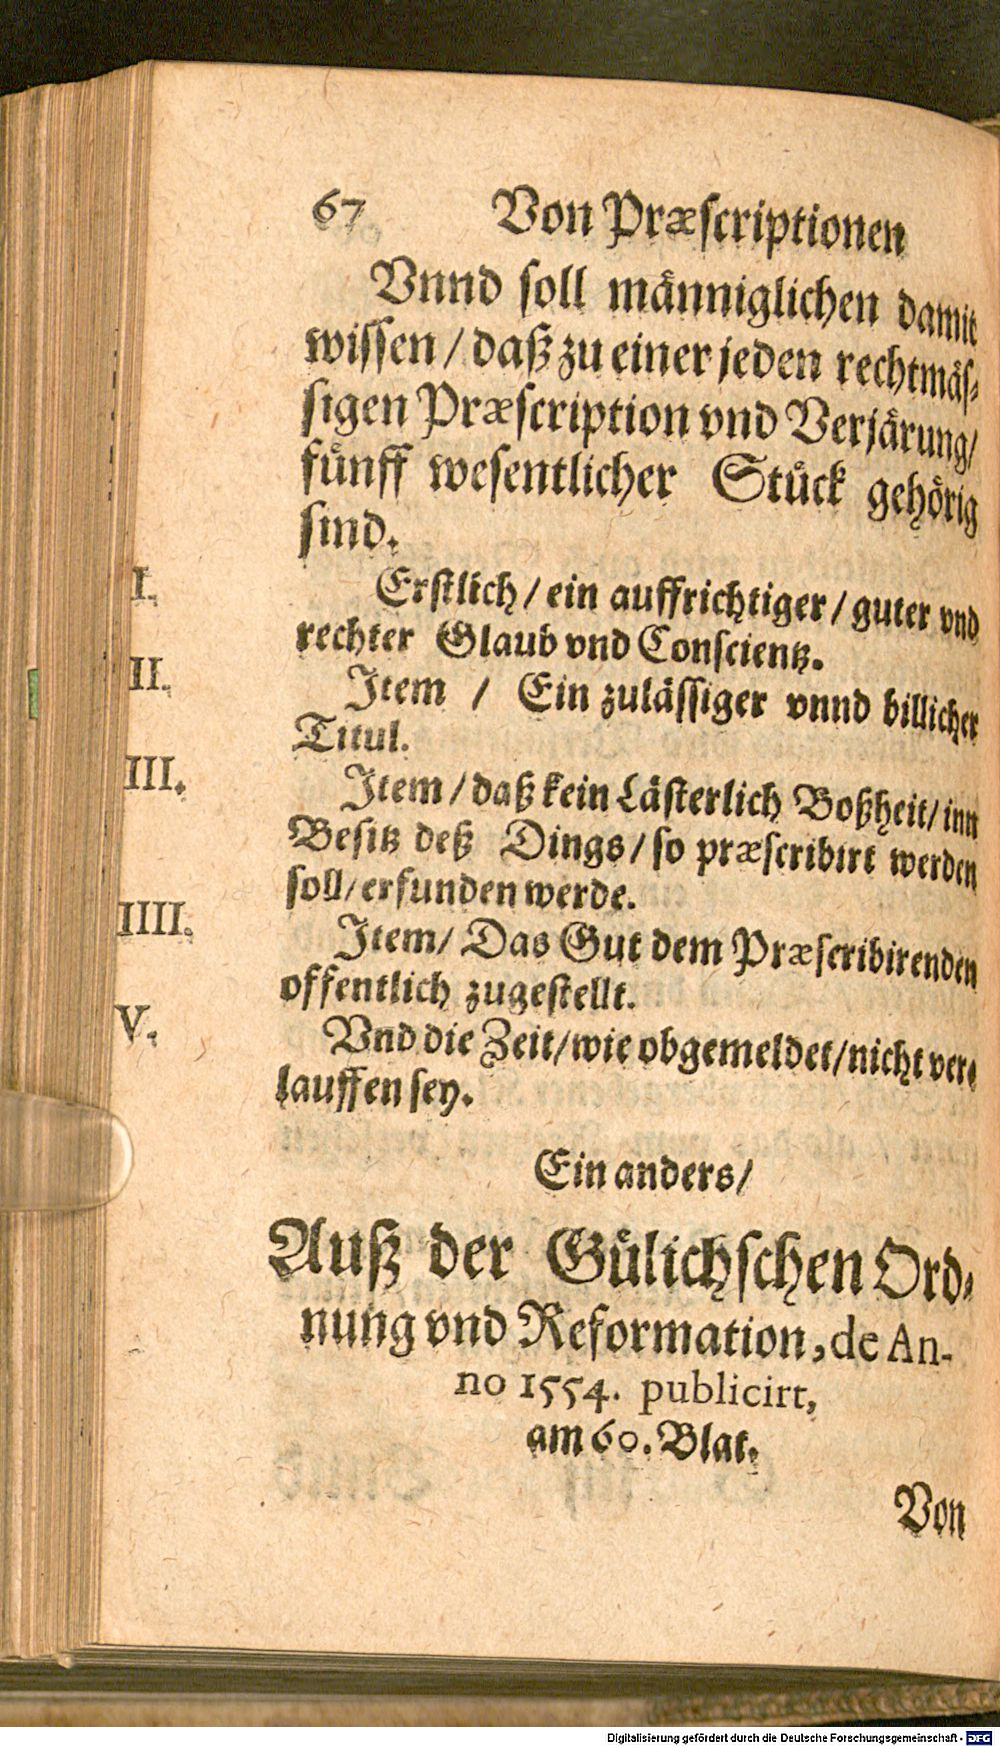 67 Von Præscriptionen
Vnnd soll männiglichen damit
wissen / daß zu einer jeden rechtmäs-
sigen Præscription vnd Verjärung/
fünff wesentlicher Stück gehörig
sind.
I. Erstlich / ein auffrichtiger / guter vnd
rechter Glaub vnd Conscientz.
II. Item / Ein zulässiger vnnd billicher
Titul.
III. Item / daß kein Lästerlich Boßheit / inn
Besitz deß Dings / so præscribirt werden
soll / erfunden werde.
IIII. Item / Das Gut dem Præscribirenden
offentlich zugestellt.
V. Vnd die Zeit / wie obgemeldet / nicht ver-
lauffen sey.
Ein anders /
Auß der Gülichschen Ord-
nung vnd Reformation, de An-
no 1554. publicirt,
am 60. Blat.
Von
Digitalisierung gefördert durch die Deutsche Forschungsgemeinschaft - DFG